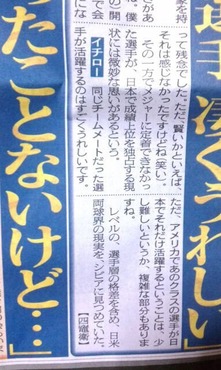 凄くうれしい」
って残念でした。ただ、賢いかといえば、
それは感じなかったですけどね（笑い）。
その一方でメジャーに定着できなかっ
た選手が、日本で成績上位を独占する現
状には微妙な思いがあるという。
イチロー　同じチームメートだった選
手が活躍するのはすごくうれしいです。
ただ、アメリカであのクラスの選手が日
本でそれだけ活躍するということは、少
し難しいというか、複雑な部分もありま
すね。
レベルの、選手層の格差を含め、日米
両球界の現実を、シビアに見つめていた。
【四竈衛】
ったことないけど…」